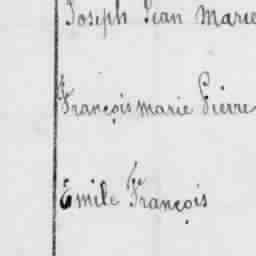 Joseph Jean Marie
François marie Pierre
Emile François